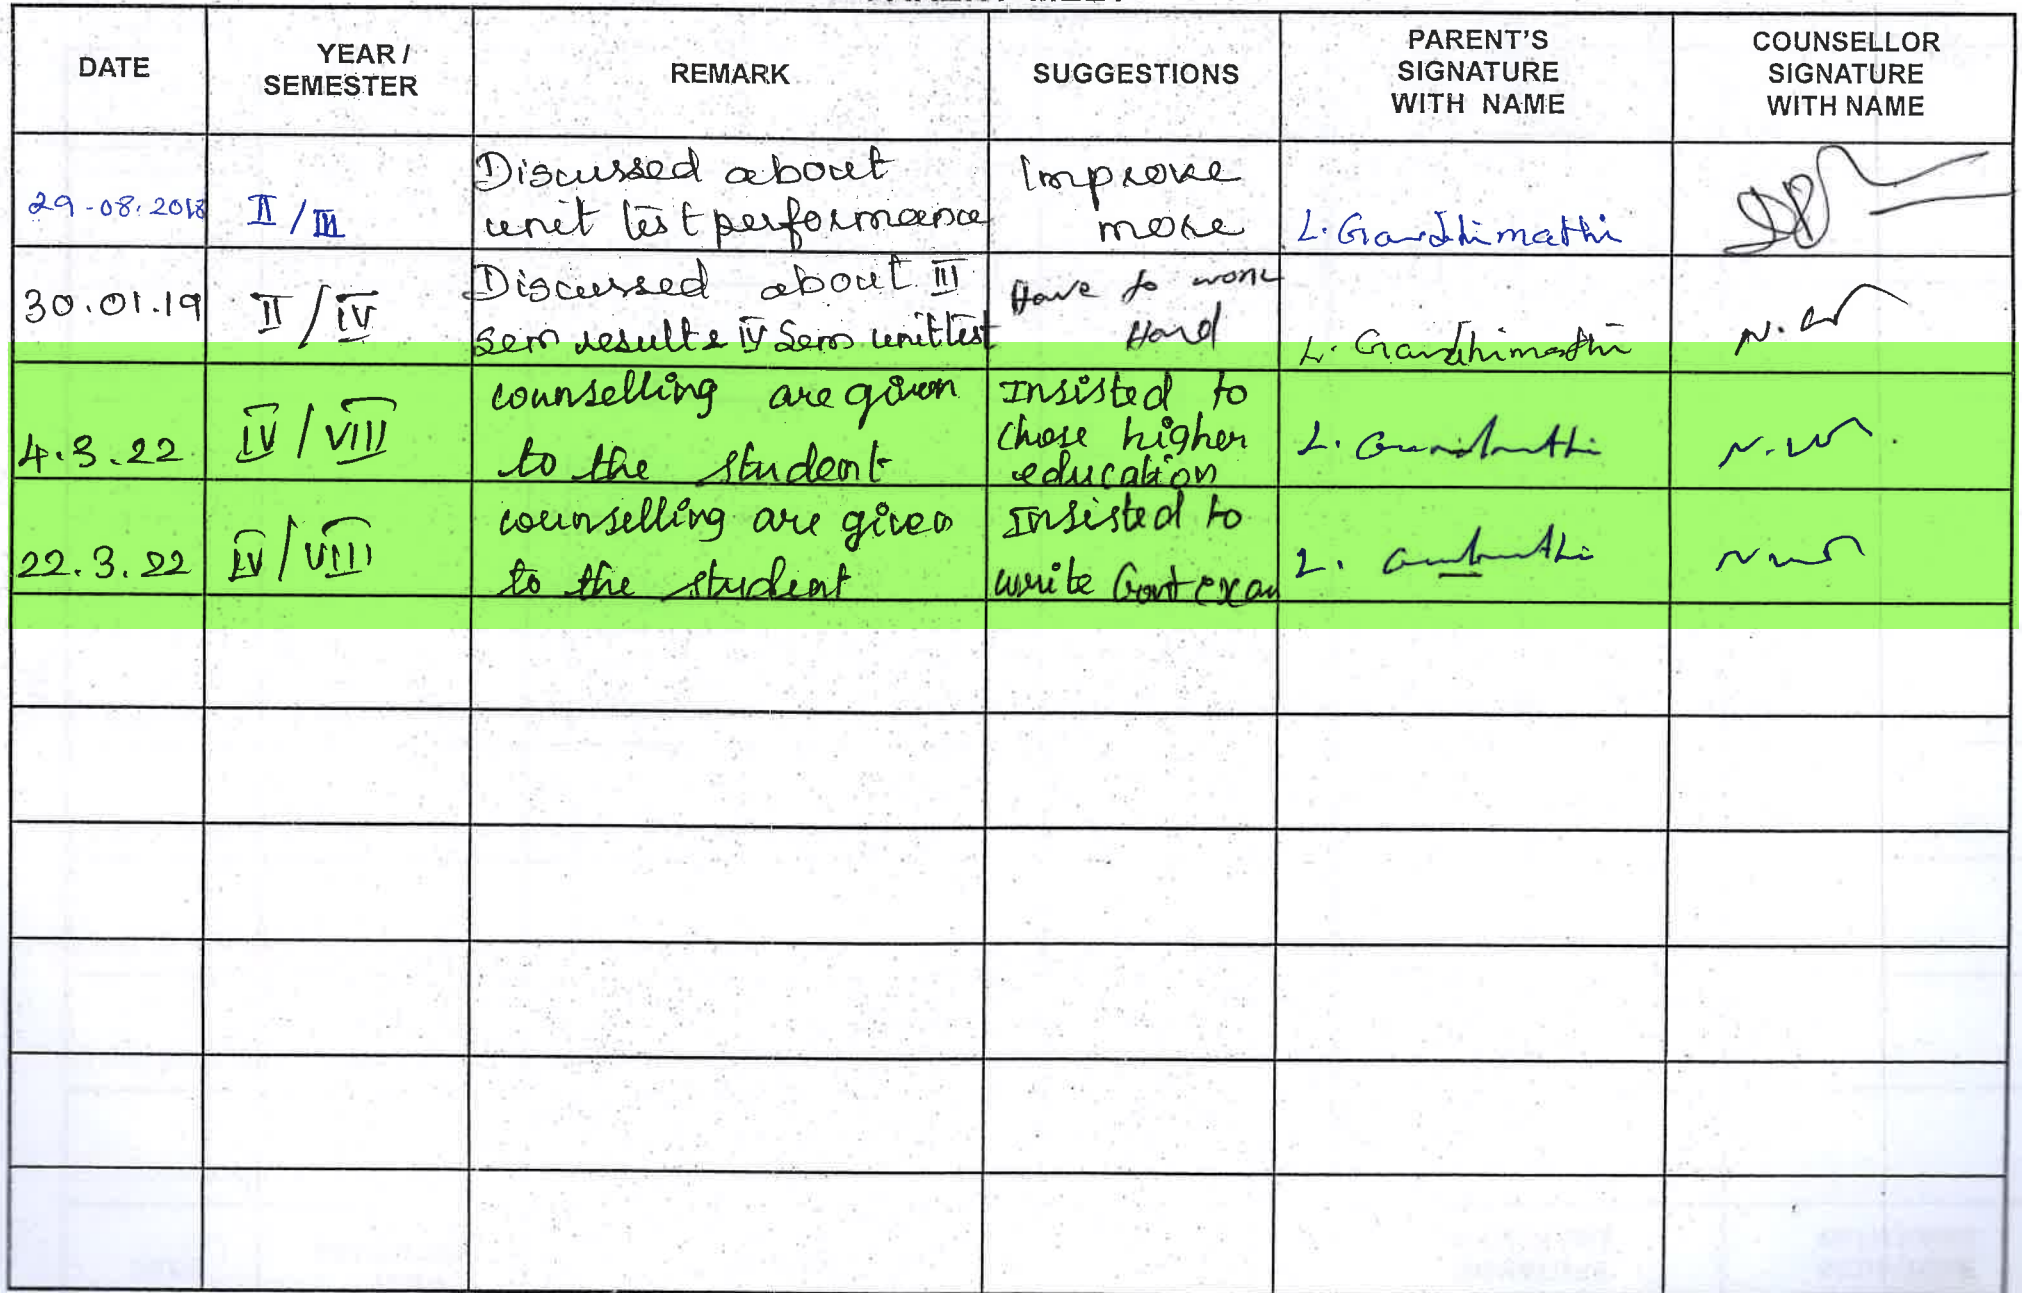 DATE
YEAR /
SEMESTER
REMARK
SUGGESTIONS
PARENT'S
SIGNATURE
WITH NAME
COUNSELLOR
SIGNATURE
WITH NAME
29-08.2018
II / III
Discussed about
unit test performance
Improve
more
L. Gandhimathi
30.01.19
II / IV
Discussed about III
sem result & IV Sem unit test
Have to work
Hard
L. Gandhimathi
4.3.22
IV / VIII
counselling are given
to the student
Insisted to
chose higher
education
L.
22.3.22
IV / VIII
counselling are given
to the student
Insisted to
write Govt exam
L.